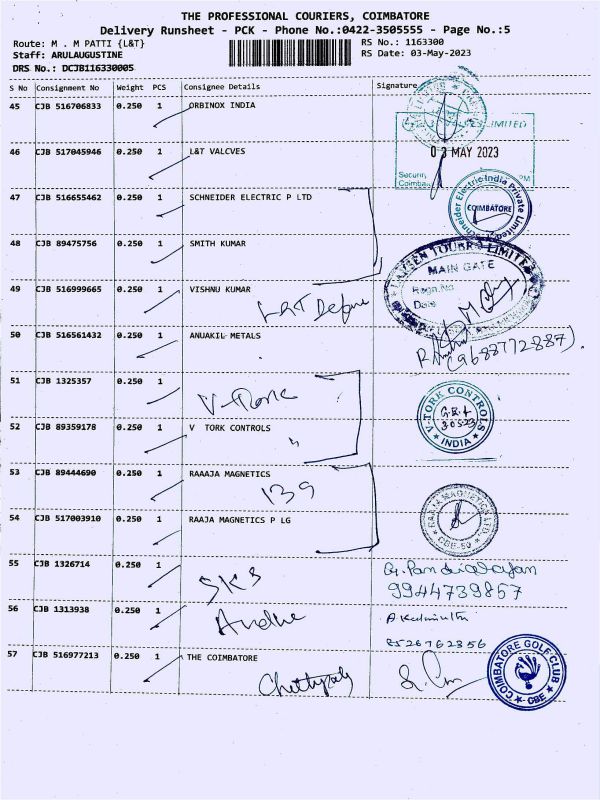 THE PROFESSIONAL COURIERS, COIMBATORE
Delivery Runsheet - PCK - Phone No.:0422-3505555 - Page No.:5
Route: M . M PATTI {L&T}
RS No.: 1163300
Staff: ARULAUGUSTINE
RS Date: 03-May-2023
DRS No.: DCJB116330005
S No Consignment No Weight PCS Consignee Details Signature
45 CJB 516706833 0.250 1 ORBINOX INDIA
46 CJB 517045946 0.250 1 L&T VALCVES
LIMITED
03 MAY 2023
47 CJB 516655462 0.250 1 SCHNEIDER ELECTRIC P LTD
Schneider Electric India Private Limited
COIMBATORE
48 CJB 89475756 0.250 1 SMITH KUMAR
MAIN GATE
Regn.No
Date
49 CJB 516999665 0.250 1 VISHNU KUMAR
50 CJB 516561432 0.250 1 ANUAKIL METALS
(9688772887)
51 CJB 1325357 0.250 1
V-Tork
52 CJB 89359178 0.250 1 V TORK CONTROLS
"
V-TORK CONTROLS
INDIA
53 CJB 89444690 0.250 1 RAAAJA MAGNETICS
139
54 CJB 517003910 0.250 1 RAAJA MAGNETICS P LG
RAAJA MAGNETICS LTD
CBE-59
55 CJB 1326714 0.250 1
SKS
9944739857
56 CJB 1313938 0.250 1
8526762356
57 CJB 516977213 0.250 1 THE COIMBATORE
COIMBATORE GOLF CLUB
CBE